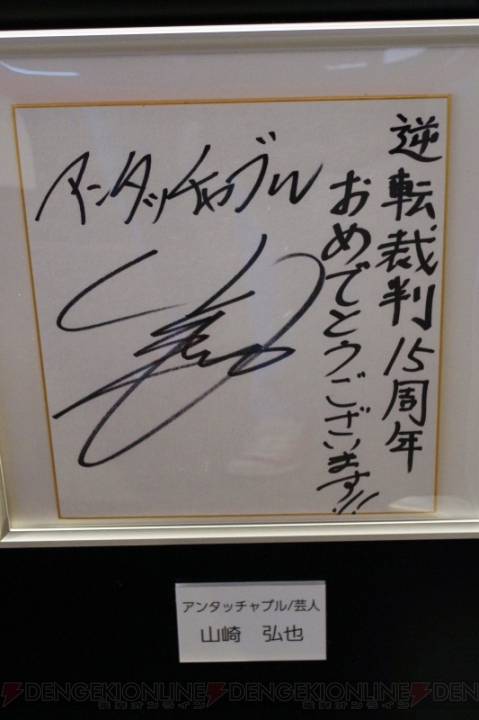 逆転裁判15周年
おめでとうございます!!
アンタッチャブル
アンタッチャブル/芸人
山崎 弘也
DENGEKIONLINE DENGEKIONLINE
電撃オンライン 電撃オンライン